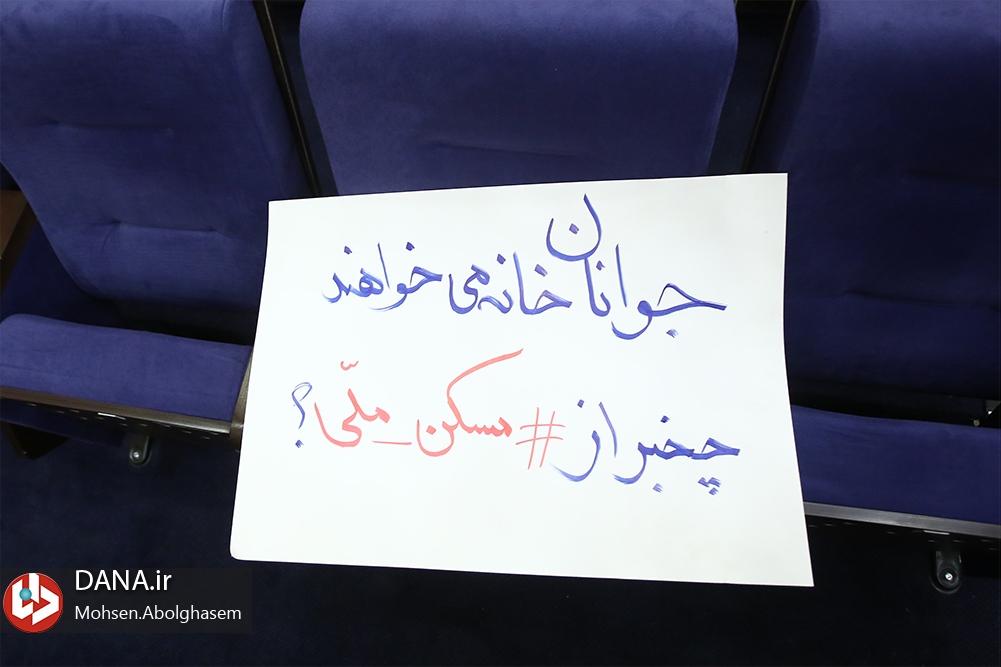 جوانان خانه می خواهند
چخبر از #مسکن_ملّی؟
DANA.ir
Mohsen.Abolghasem